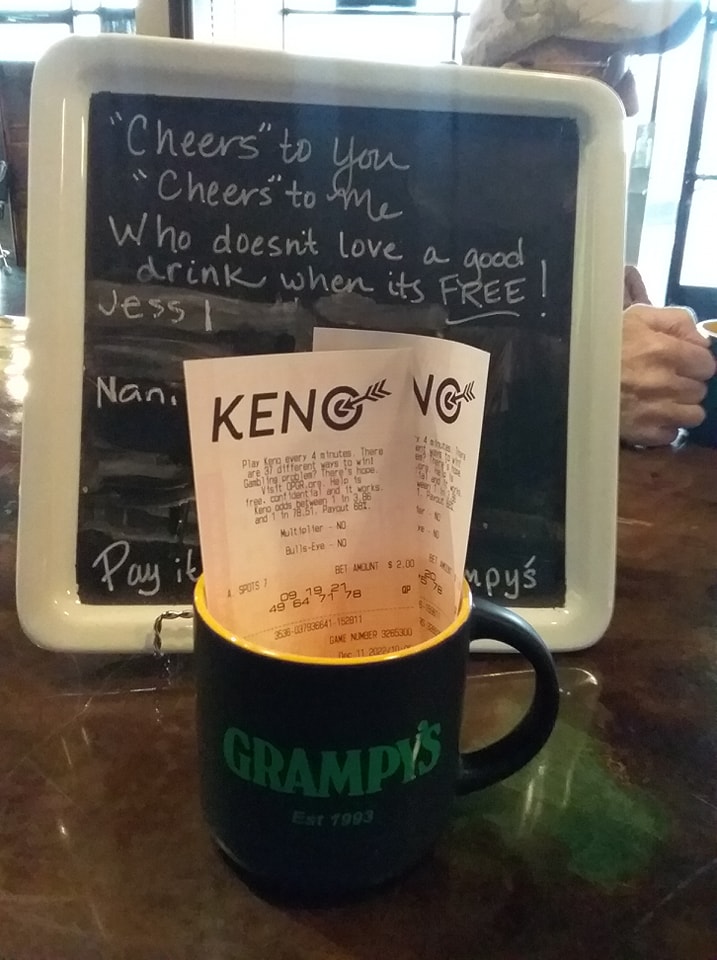 "Cheers" to You
"Cheers" to Me
Who doesn't love a good
drink when its FREE!
Jess |
Nan.
Pay it
mpy's
KENO
Play Keno every 4 minutes. There
are 37 different ways to win!
Gambling problem? There's hope.
Visit OPGR.org. Help is
free, confidential and it works.
Keno odds between 1 in 3.86
and 1 in 78.51. Payout 68%.
Multiplier - NO
Bulls-Eye - NO
BET AMOUNT $ 2.00
A. SPOTS 7
09 19 21
49 64 71 78
QP
3536-037936641-152811
GAME NUMBER 3265300
Dec 11 2022/10
NO
BET AMO
20
78
GRAMPY'S
Est 1993